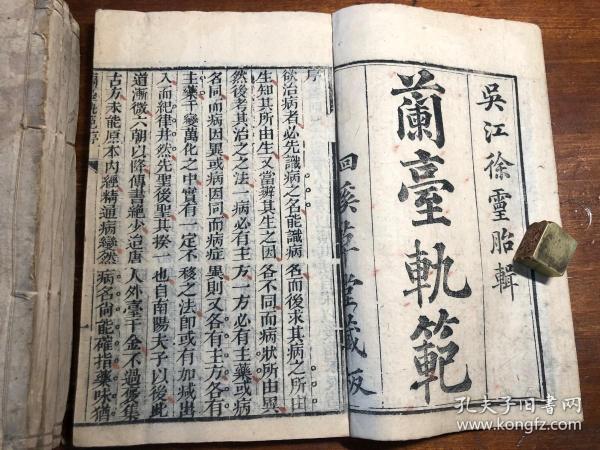 吳江徐靈胎輯
蘭臺軌範
洄溪草堂藏板
序
欲治病者必先識病之名能識病名而後求其病之所由
生知其所由生又當辨其生之因各不同而病狀所由異
然後考其治之之法一病必有主方一方必有主藥或病
名同而病因異或病因同而病症異則又各有主方各有
主藥千變萬化之中實有一定不移之法即或有加減出
入而紀律井然先聖後聖其揆一也自南陽夫子以後此
道漸微六朝以降傳書絕少迨唐人外臺千金不過蒐集
古方未能原本內經精通病變然病名尚能確指藥味猶
孔夫子旧书网
www.kongfz.com